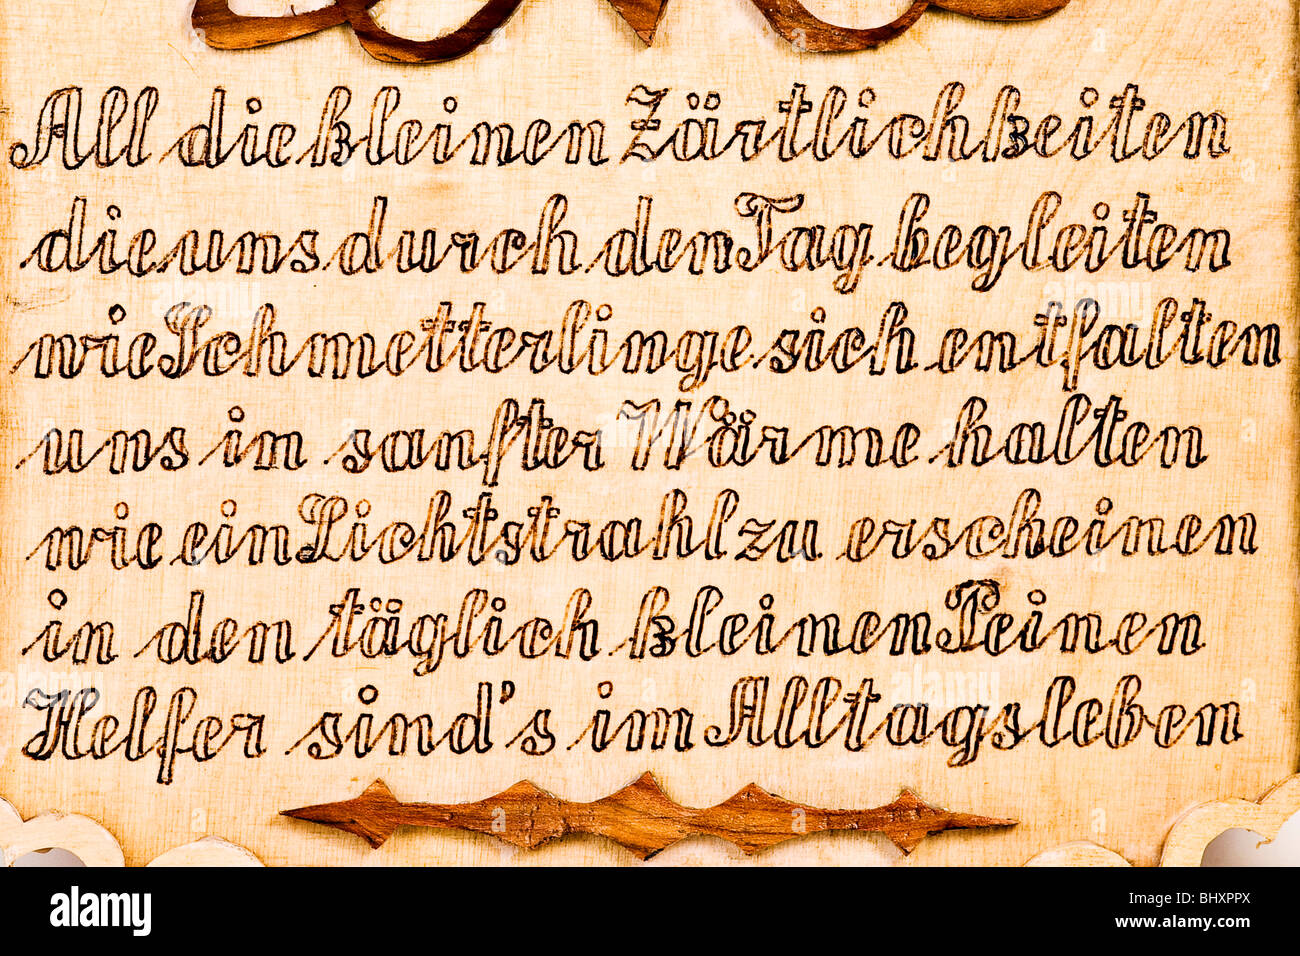 All die kleinen Zärtlichkeiten
die uns durch den Tag begleiten
wie Schmetterlinge sich entfalten
uns in sanfter Wärme halten
wie ein Lichtstrahl zu erscheinen
in den täglich kleinen Peinen
Helfer sind's im Alltagsleben
alamy
Image ID: BHXPPX
www.alamy.com